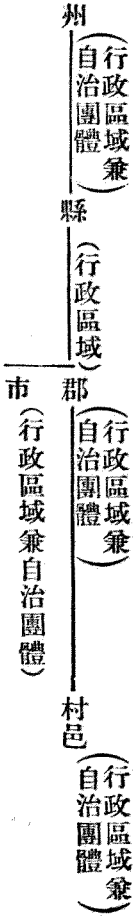 州(行政區域兼自治團體)
縣(行政區域)
郡(行政區域兼自治團體)
村邑(行政區域兼自治團體)
市(行政區域兼自治團體)